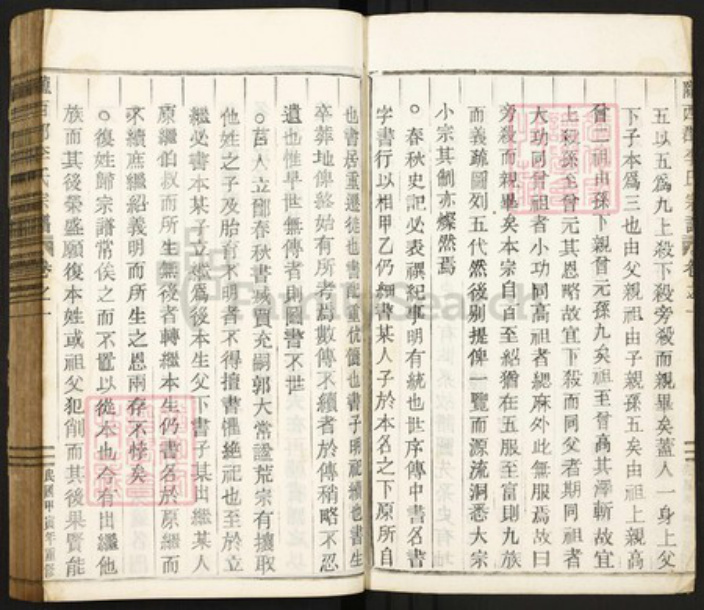 五以五爲九上殺下殺旁殺而親畢矣蓋人一身上父
下子本爲三也由父親祖由子親孫五矣由祖上親高
曾二祖由孫下親曾元孫九矣祖至曾高其澤斬故宜
上殺孫至曾元其恩略故宜下殺而同父者期同祖者
大功同曾祖者小功同高祖者緦麻外此無服焉故曰
旁殺而親畢矣本宗自百至紹猶在五服至富則九族
而義疏圖列五代然後別提俾一覽而源流洞悉大宗
小宗其制亦燦然焉
○春秋史記必表禩紀事明有統也世序傳中書名書
字書行以相甲乙仍細書某人子於本名之下原所自
也書居重遷徙也書配重伉儷也書子明祀續也書生
卒葬地俾終始有所考焉數傳不續者於傳稍略不忍
遺也惟早世無傳者則圖書不世
○莒人立鄫春秋書滅賈充嗣郭大常諡荒宗有攘取
他姓之子及胎育不明者不得擅書懼絶祀也至於立
繼必書本某子立繼爲後本生父下書子某出繼某人
原繼伯叔而所生無後者轉繼本生仍書名於原繼而
不續庶繼紹義明而所生之恩兩存不悖矣
○復姓歸宗譜常俟之而不置以從本也今有出繼他
族而其後榮盛願復本姓或祖父犯削而其後果賢能
隴西郡李氏宗譜 卷之一
民國甲寅年重修
FamilySearch